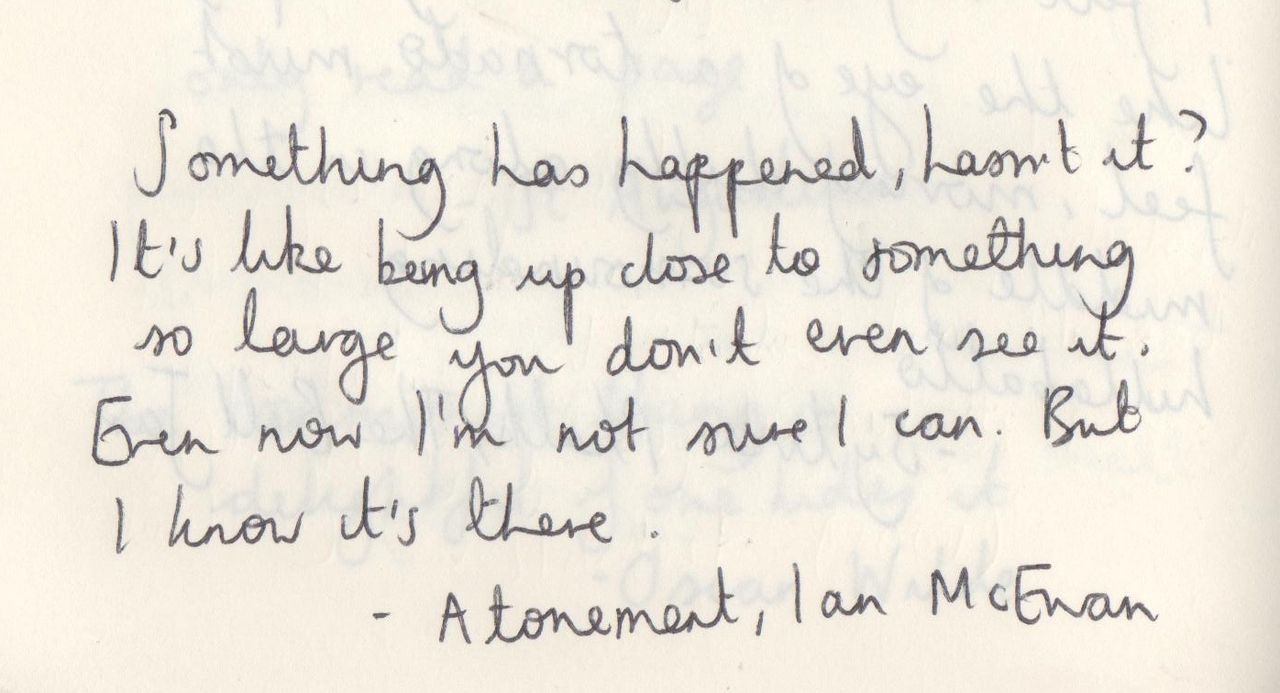 Something has happened, hasn't it?
It's like being up close to something
so large you don't even see it.
Even now I'm not sure I can. But
I know it's there.
- Atonement, Ian McEwan